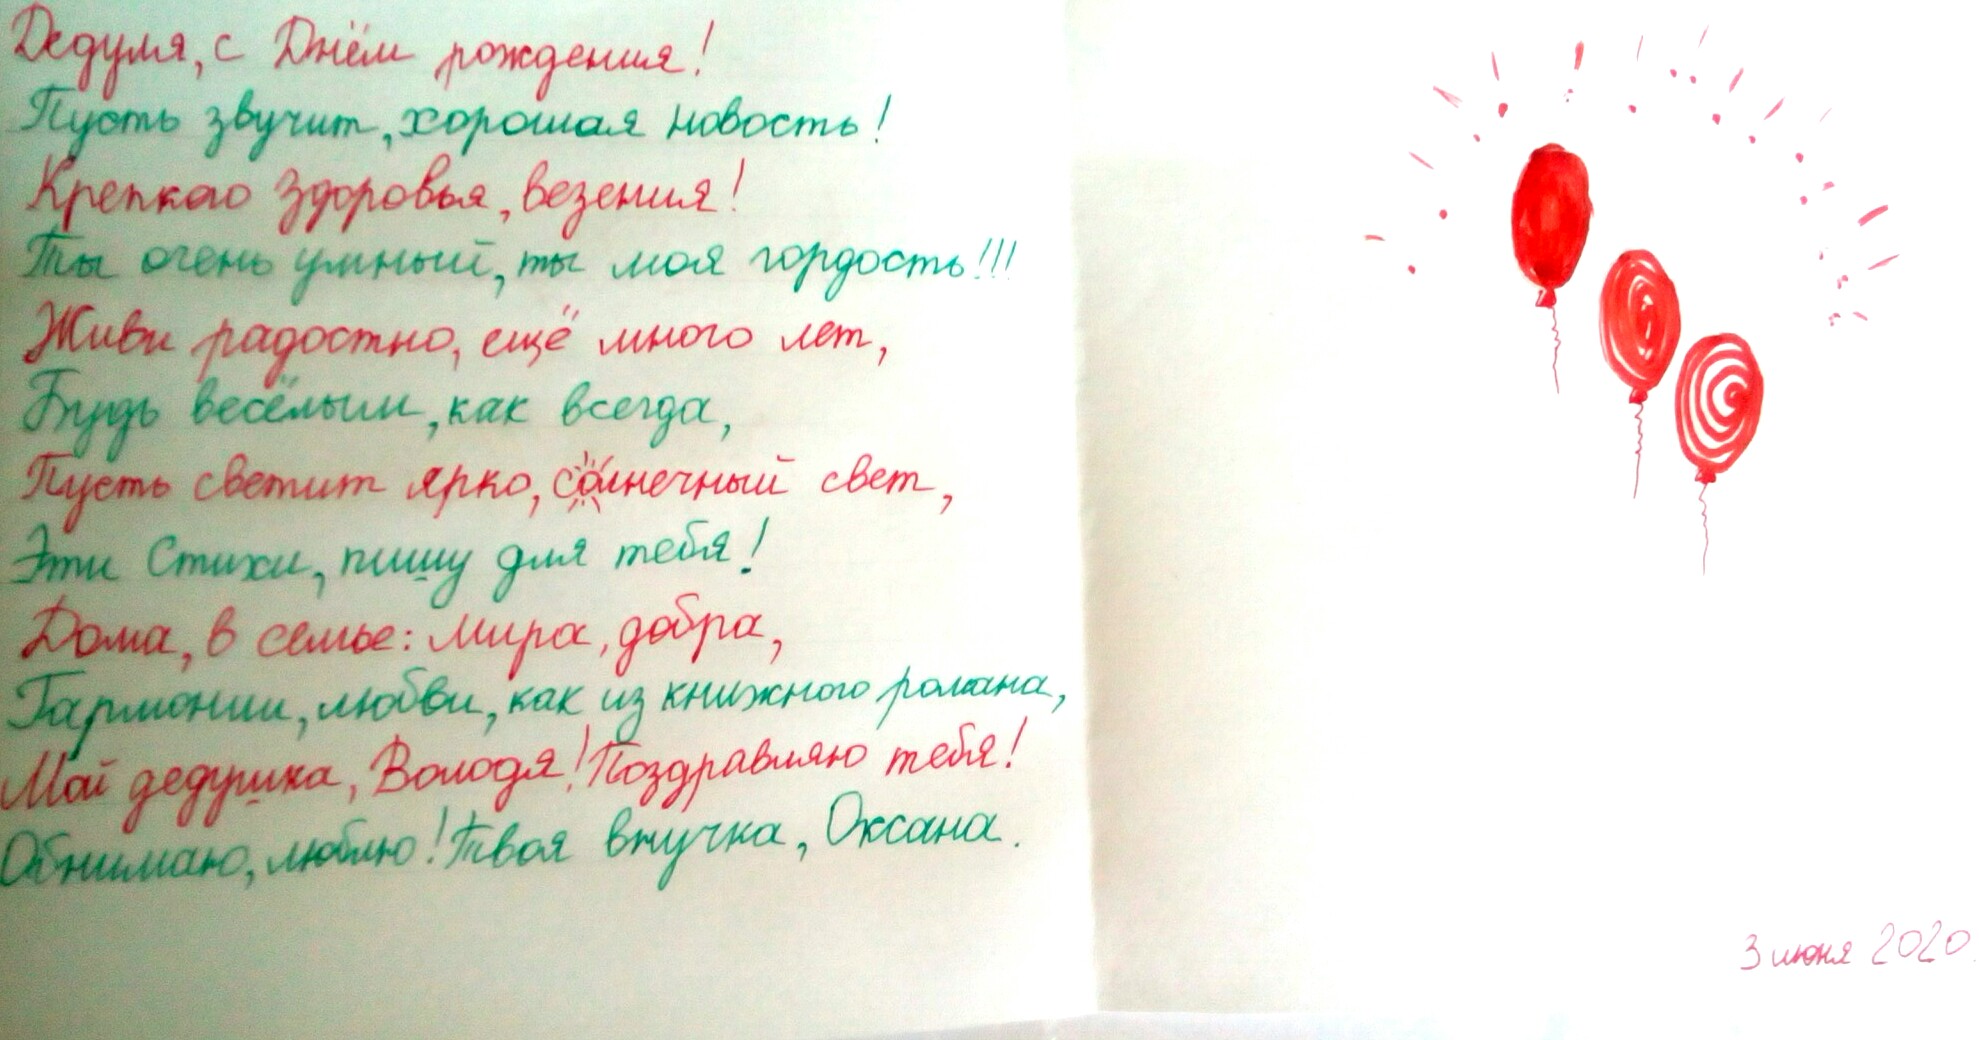 Дедуля, с Днём рождения!
Пусть звучит, хорошая новость!
Крепкого Здоровья, везения!
Ты очень умный, ты моя гордость!!!
Живи радостно, ещё много лет,
Будь весёлым, как всегда,
Пусть светит ярко, солнечный свет,
Эти Стихи, пишу для тебя!
Дома, в семье: мира, добра,
Гармонии, любви, как из книжного романа,
Мой дедушка, Володя! Поздравляю тебя!
Обнимаю, люблю! Твоя внучка, Оксана.
3 июня 2020